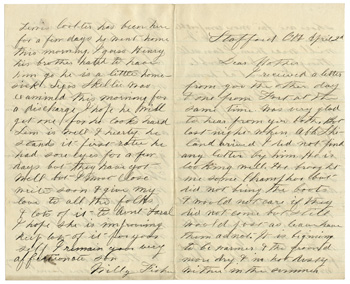 Stafford Ct. April
Dear Mother
I received a letter
from you the other day
& one from Fred at the
same time. Was very glad
to hear from you both. But
last night when
came I did not find
any letter by him. He is
brought
me some
did not bring the boots
I would not care if they
did not come but still
would just as leave have
them as not. It is beginning
to be warmer & the ground
more dry & im not
neither in the summer
has been here
for a few days he went home
this morning I guess Henry
his brother hated to have
him go he is a little home-
sick. Skelie was
examined this morning for
a discharge I hope he will
get one for he looks hard
is well & hearty he
stands it first rate he
had sore eyes for a few
days but they have got
well but I must close
soon & give my
love to all the folks
& lots of it to Aunt Sarah
I hope she is improving
keep lots of it for your
self I remain your very
affectionate son
Willy